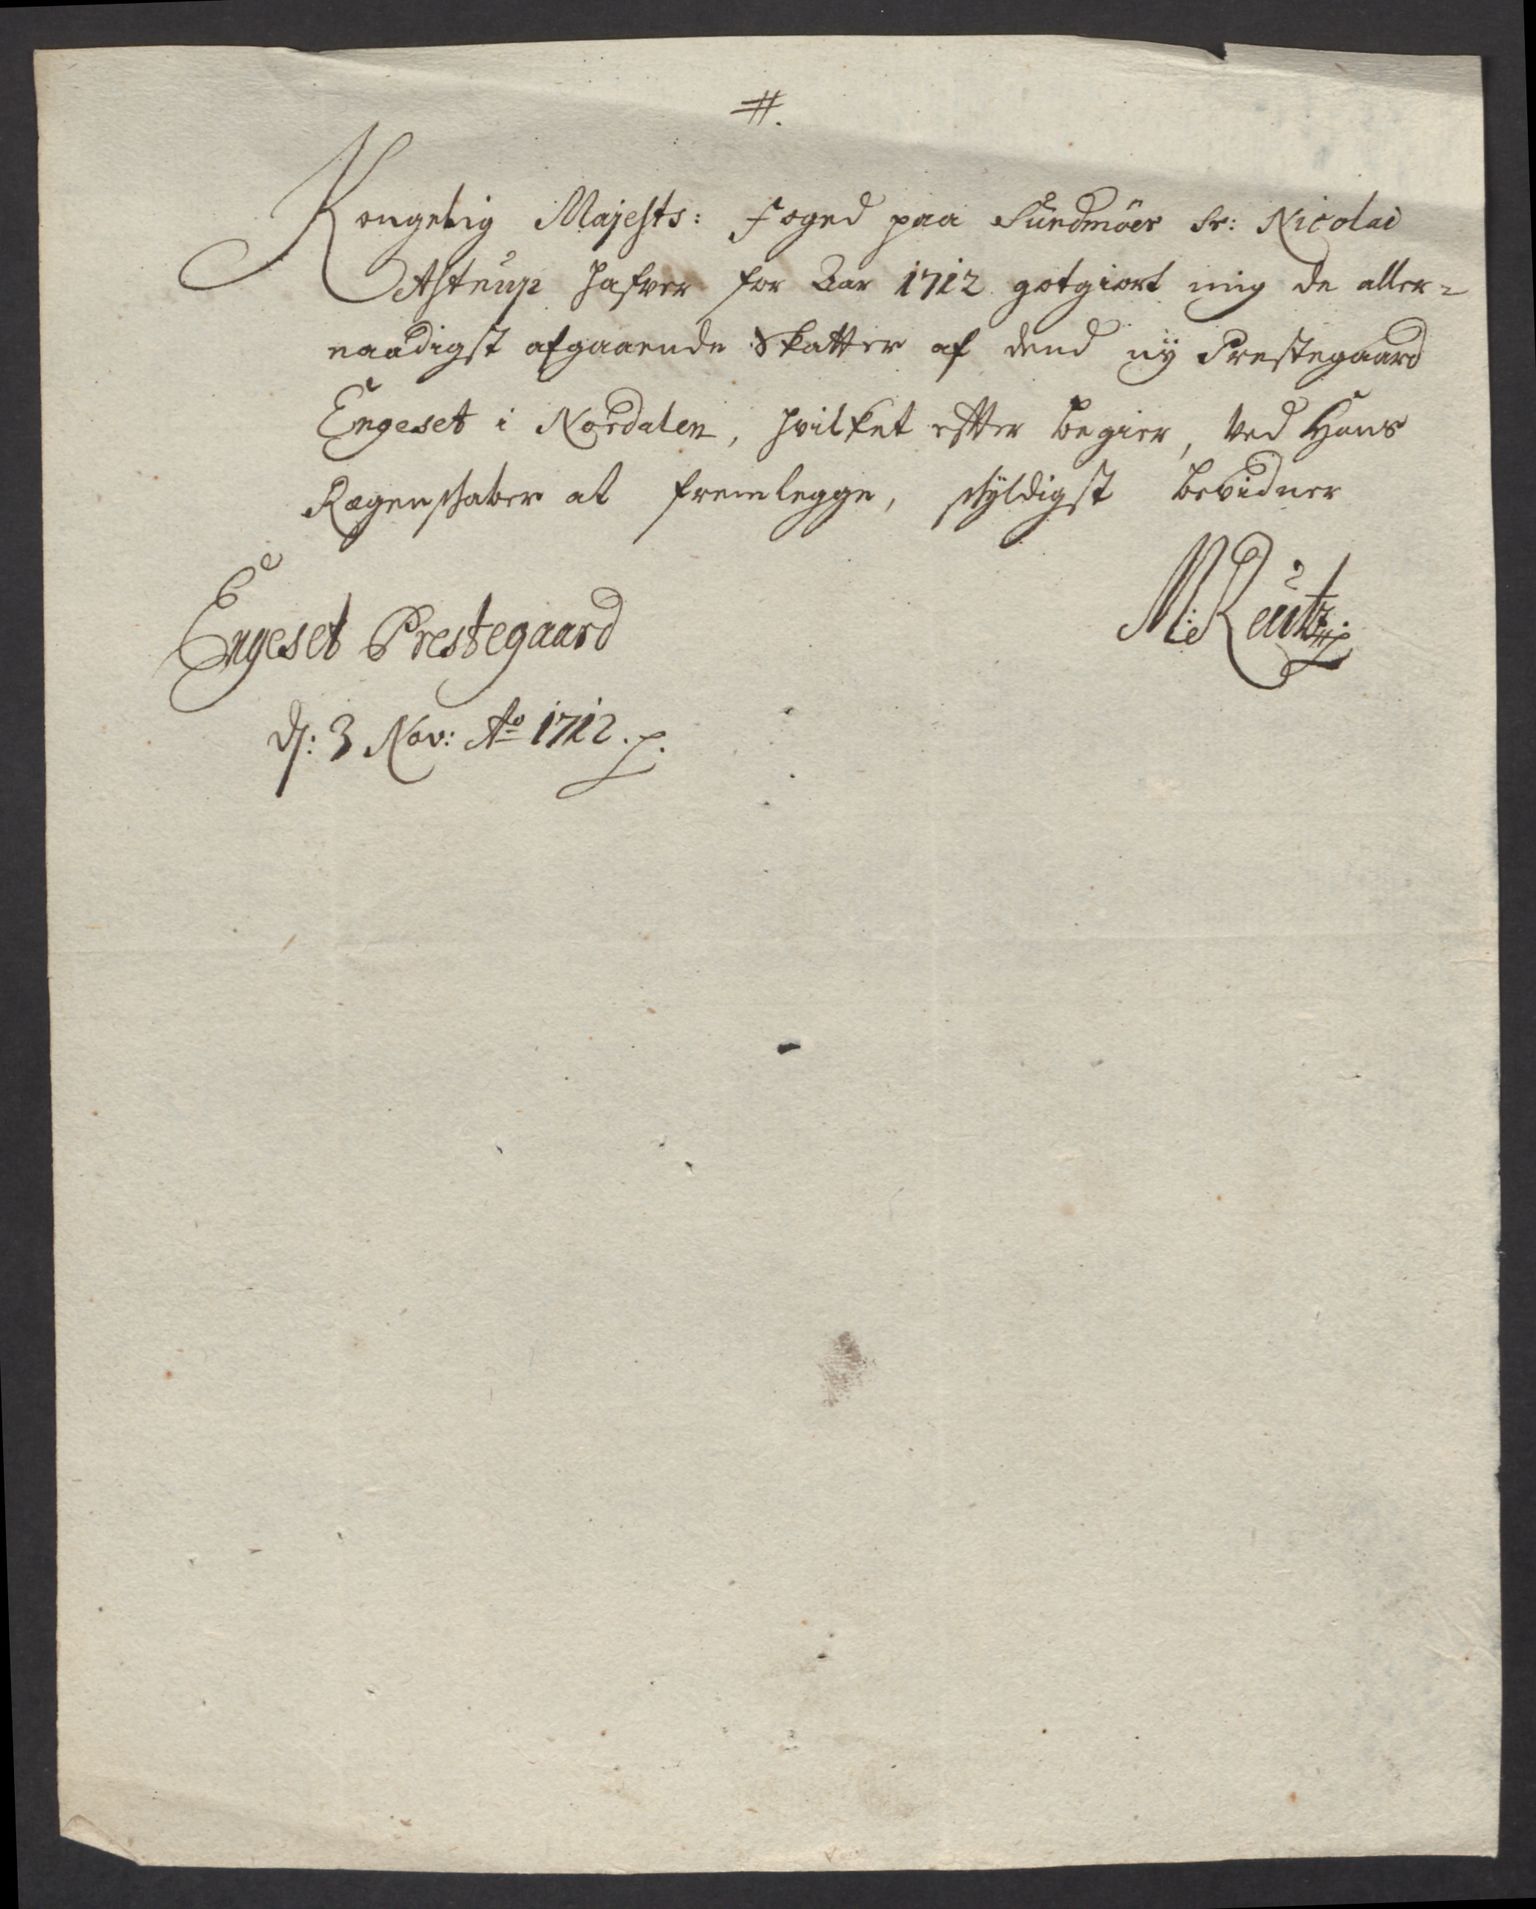 #.
Kongelig Majests: Foged paa Sundmöer Sr: Nicolai
Astrup hafver for Aar 1712 gotgiort mig de aller=
naadigst afgaaende Skatter af dend nÿ Prestegaard
Engeset i Nordalen, hvilket effter begier, ved Hans
Regenskaber at fremlegge, skyldigst bevidner
M: Reutz
Engeset Prestegaard
d: 3 Nov: Ao 1712.